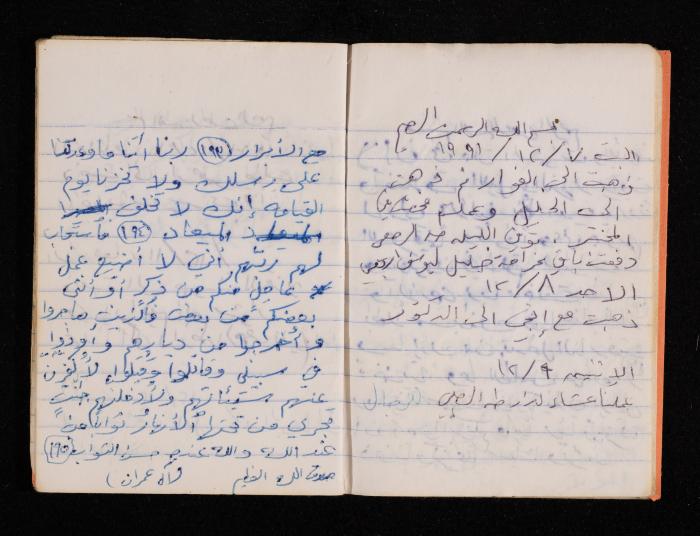 بسم الله الرحمن الرحيم
السبت ٧/١٢/١٩٩١
ذهبت الى الفوار ثم ذهبت
الى الخليل وعملت
المختبر. توفى الليلة
دفعت باقي خليل ليونس
الاحد ٨/١٢
ذهبت مع إلى الدكتور
الاثنين ٩/١٢
عملنا عشاء لدار طه
مع الأبرار (١٩٣) ربنا آتنا ما وعدتنا
على رسلك ولا تخزنا يوم
القيامه إنك لا تخلف
الميعاد (١٩٤) فاستجاب
لهم ربهم أني لا أضيع عمل
عامل منكم من ذكر أو أنثى
بعضكم من بعض فالذين هاجروا
وأخرجوا من ديارهم وأوذوا
في سبيلي وقاتلوا وقتلوا لأكفرن
عنهم سيئاتهم ولأدخلنهم جنت
تجري من تحتها الأنهار ثوابا من
عند الله والله عنده حسن الثواب (١٩٥)
صدق الله العظيم (آل عمران)